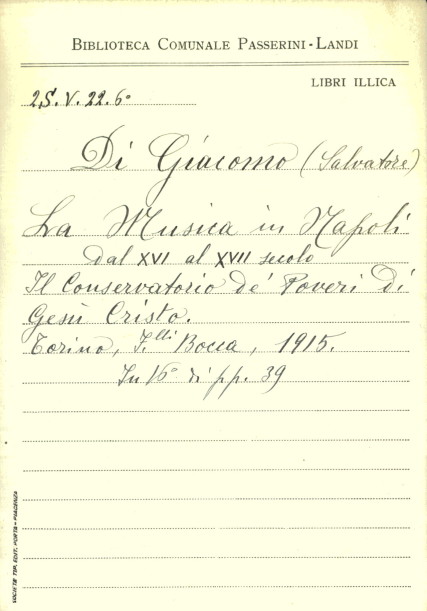 BIBLIOTECA COMUNALE PASSERINI - LANDI
LIBRI ILLICA
2S. V. 22. 6°
Di Giacomo (Salvatore)
La Musica in Napoli
dal XVI al XVII secolo
Il Conservatorio de' Poveri di
Gesù Cristo.
Torino, F.lli Bocca, 1915.
In 16° di pp. 39
SOCIETÀ TIP. EDIT. PORTA - PIACENZA